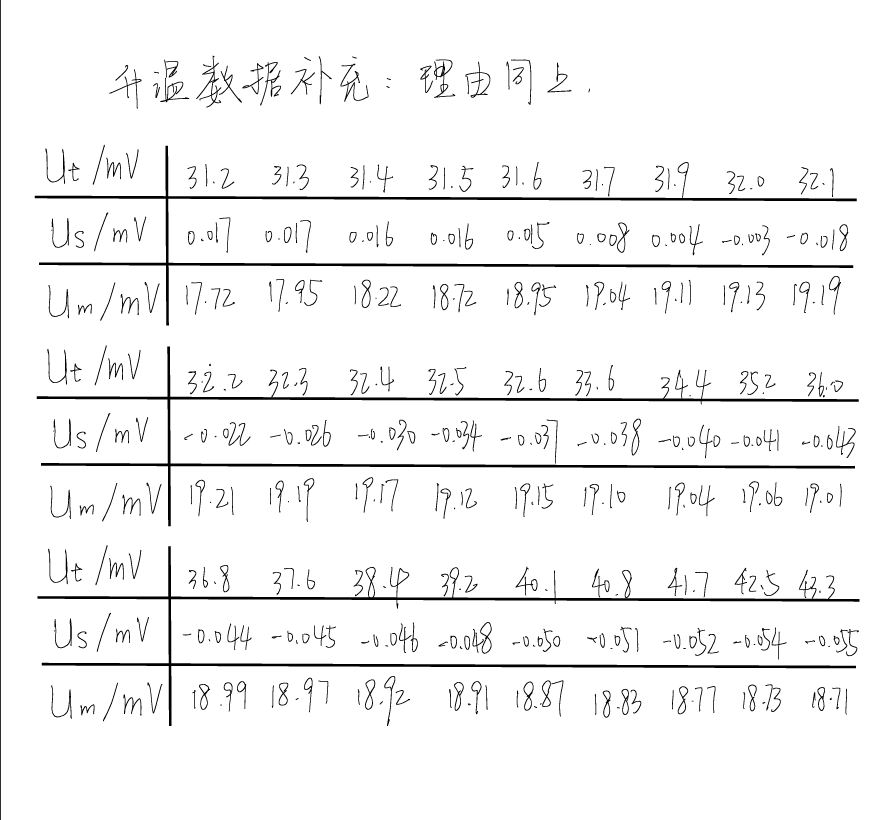 升温数据补充：理由同上.
Ut/mV 31.2 31.3 31.4 31.5 31.6 31.7 31.9 32.0 32.1
Us/mV 0.017 0.017 0.016 0.016 0.015 0.008 0.004 -0.003 -0.018
Um/mV 17.72 17.95 18.22 18.72 18.95 19.04 19.11 19.13 19.19
Ut/mV 32.2 32.3 32.4 32.5 32.6 33.6 34.4 35.2 36.0
Us/mV -0.022 -0.026 -0.030 -0.034 -0.037 -0.038 -0.040 -0.041 -0.043
Um/mV 19.21 19.19 19.17 19.12 19.15 19.10 19.04 19.06 19.01
Ut/mV 36.8 37.6 38.4 39.2 40.1 40.8 41.7 42.5 43.3
Us/mV -0.044 -0.045 -0.046 -0.048 -0.050 -0.051 -0.052 -0.054 -0.055
Um/mV 18.99 18.97 18.92 18.91 18.87 18.83 18.77 18.73 18.71